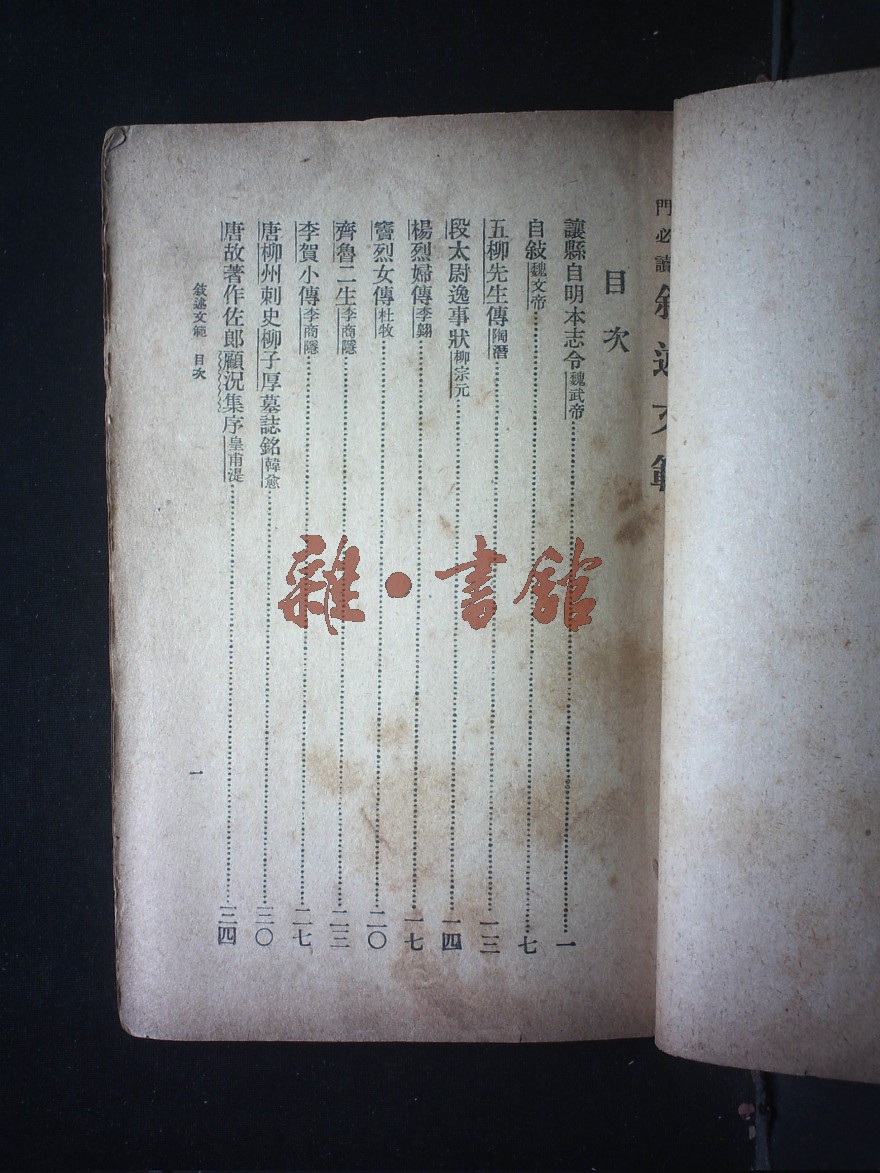 門必讀敘述文範
目次
讓縣自明本志令魏武帝………一
自敍魏文帝………七
五柳先生傳陶潛………一三
段太尉逸事狀柳宗元………一四
楊烈婦傳李翱………一七
竇烈女傳杜牧………二〇
齊魯二生李商隱………二三
李賀小傳李商隱………二七
唐柳州刺史柳子厚墓誌銘韓愈………三〇
唐故著作佐郎顧況集序皇甫湜………三四
敍述文範 目次
一
雜·書館